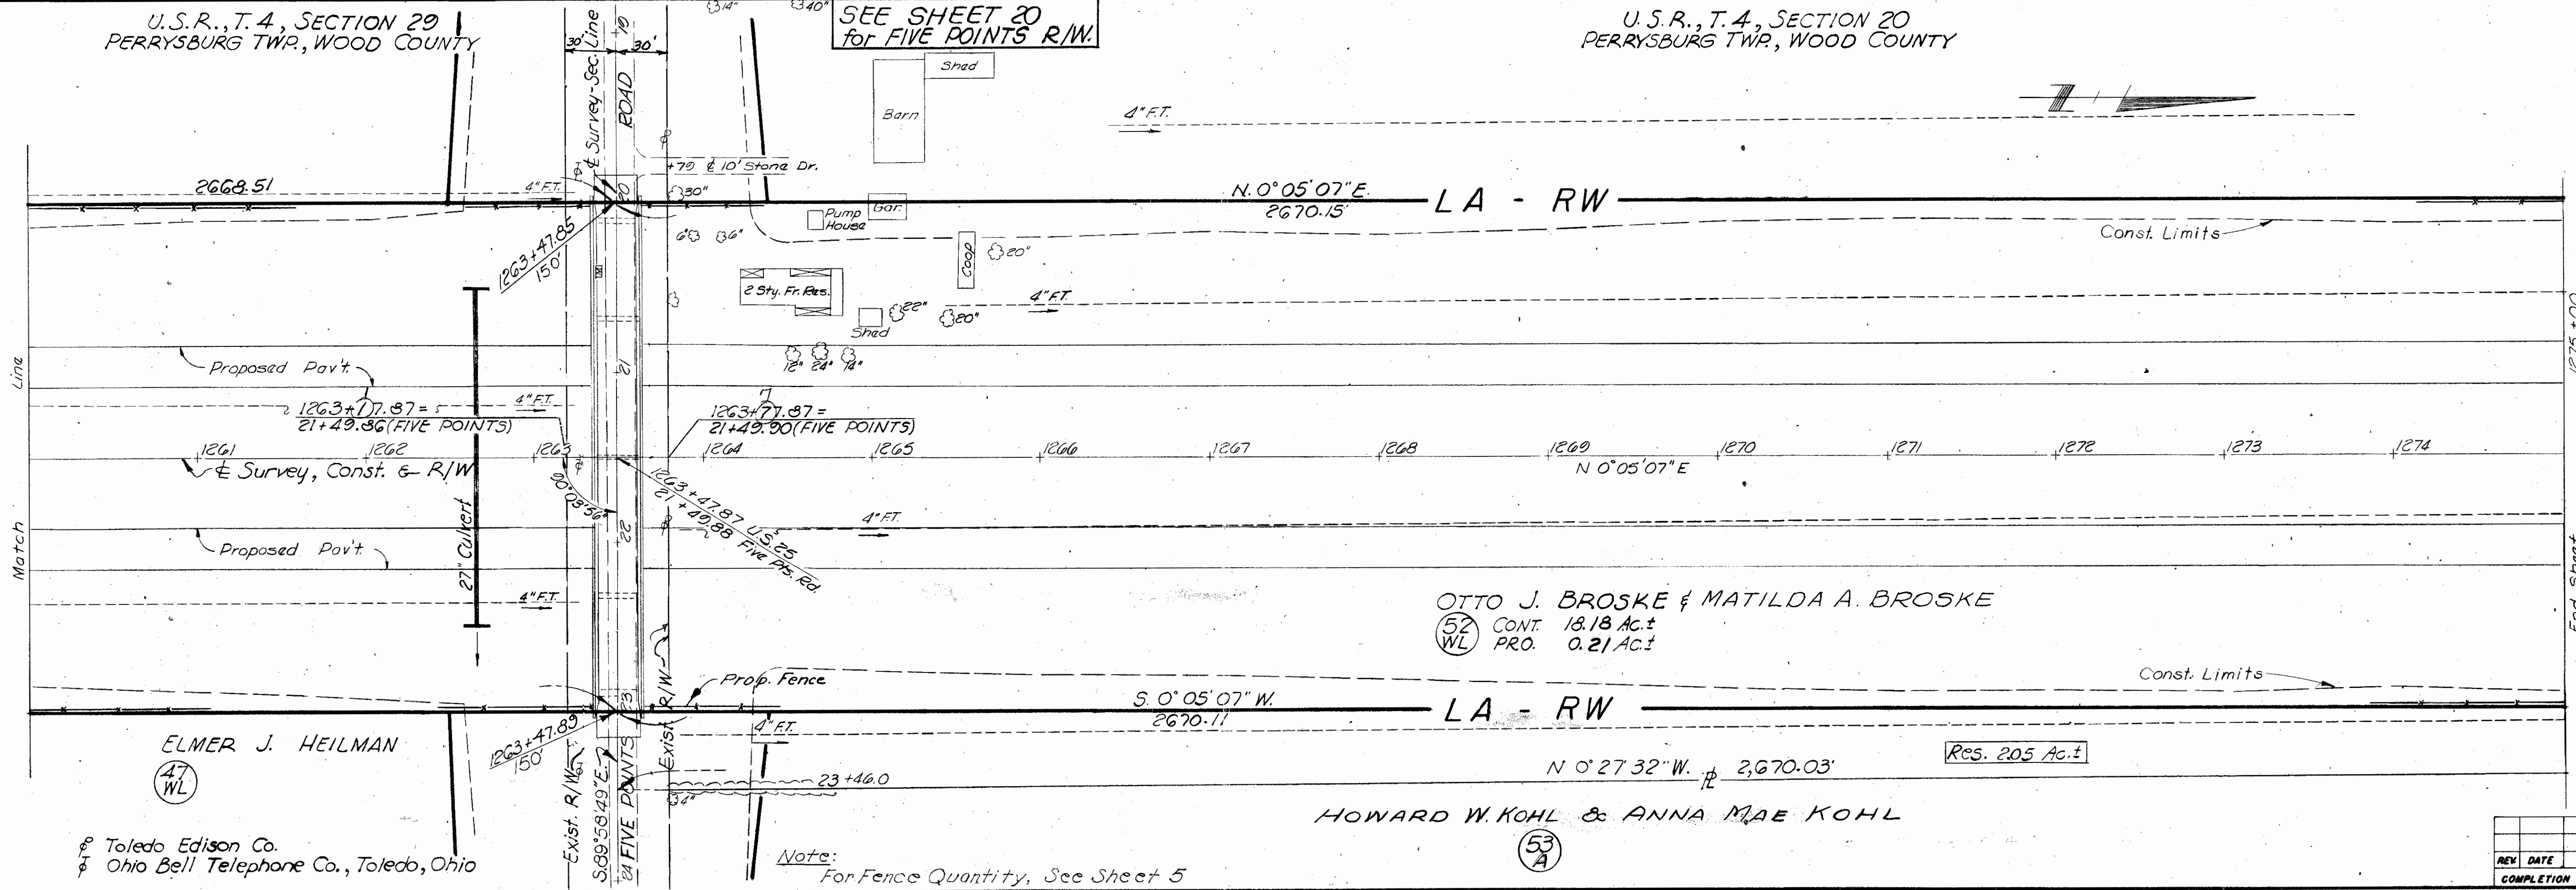 U.S.R., T. 4, SECTION 29
PERRYSBURG TWP., WOOD COUNTY
SEE SHEET 20
for FIVE POINTS R/W.
U.S.R., T. 4, SECTION 20
PERRYSBURG TWP., WOOD COUNTY
14"
40"
30'
30'
℄ Survey-Sec. Line
ROAD
19
Shed
Barn
4" F.T.
+79 ℄ 10' Stone Dr.
2668.51
4" F.T.
20
30"
Pump
House
Gar.
N. 0°05'07" E.
2670.15'
LA - RW
Const. Limits
6"
6"
1263+47.85
150'
Coop
20"
2 Sty. Fr. Res.
Shed
22"
20"
4" F.T.
12" 24" 14"
Match Line
Proposed Pav't.
21
7
1263+77.87 =
21+49.86 (FIVE POINTS)
4" F.T.
7
1263+77.87 =
21+49.90 (FIVE POINTS)
1261
1262
1263
1264
1265
1266
1267
1268
1269
1270
1271
1272
1273
1274
1275+00
℄ Survey, Const. & R/W
N 0°05'07" E
90°03'56"
1263+47.87 U.S. 25
21+49.88 Five Pts. Rd.
22
4" F.T.
27" Culvert
Proposed Pav't.
4" F.T.
End Sheet
OTTO J. BROSKE & MATILDA A. BROSKE
52
WL
CONT. 18.18 Ac.±
PRO. 0.21 Ac.±
Prop. Fence
Exist. R/W
S. 0°05'07" W.
2670.11'
LA - RW
Const. Limits
23
4" F.T.
1263+47.89
150'
ELMER J. HEILMAN
47
WL
Exist. R/W
S. 89°58'49" E.
24 FIVE POINTS
23+46.0
34"
N 0°27'32" W. ⅊ 2,670.03'
Res. 2.05 Ac.±
HOWARD W. KOHL & ANNA MAE KOHL
53
A
Toledo Edison Co.
Ohio Bell Telephone Co., Toledo, Ohio
Note:
For Fence Quantity, See Sheet 5
REV. DATE
COMPLETION